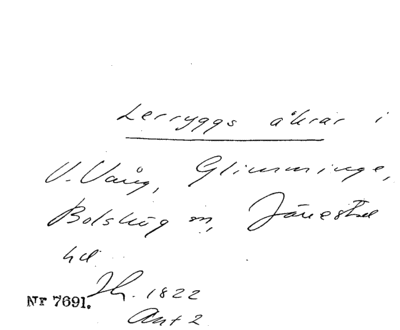 Lerryggs åkrar i
V. Vång, Glimminge,
Bolshög m,
hd
Jh. 1822
Nr 7691.
Akt 2